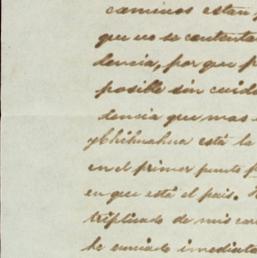 caminos estan
que no se contenta
dencia, por que p
posible sin cuida
dencia que mas
y Chihuahua está la
en el primer punto p
en que está el pais.
triplicado de mis car
he enviado imediata